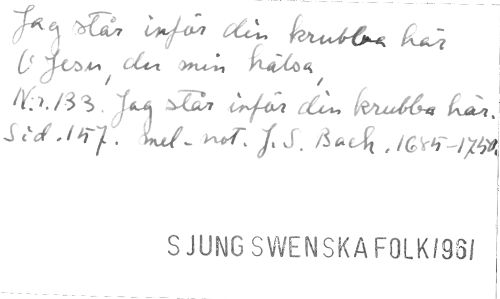 Jag står inför din krubba här
O Jesu, du min hälsa,
N:r. 133. Jag står inför din krubba här.
Sid. 157. mel-not. J. S. Bach. 1685-1750.
SJUNG SWENSKA FOLK 1961